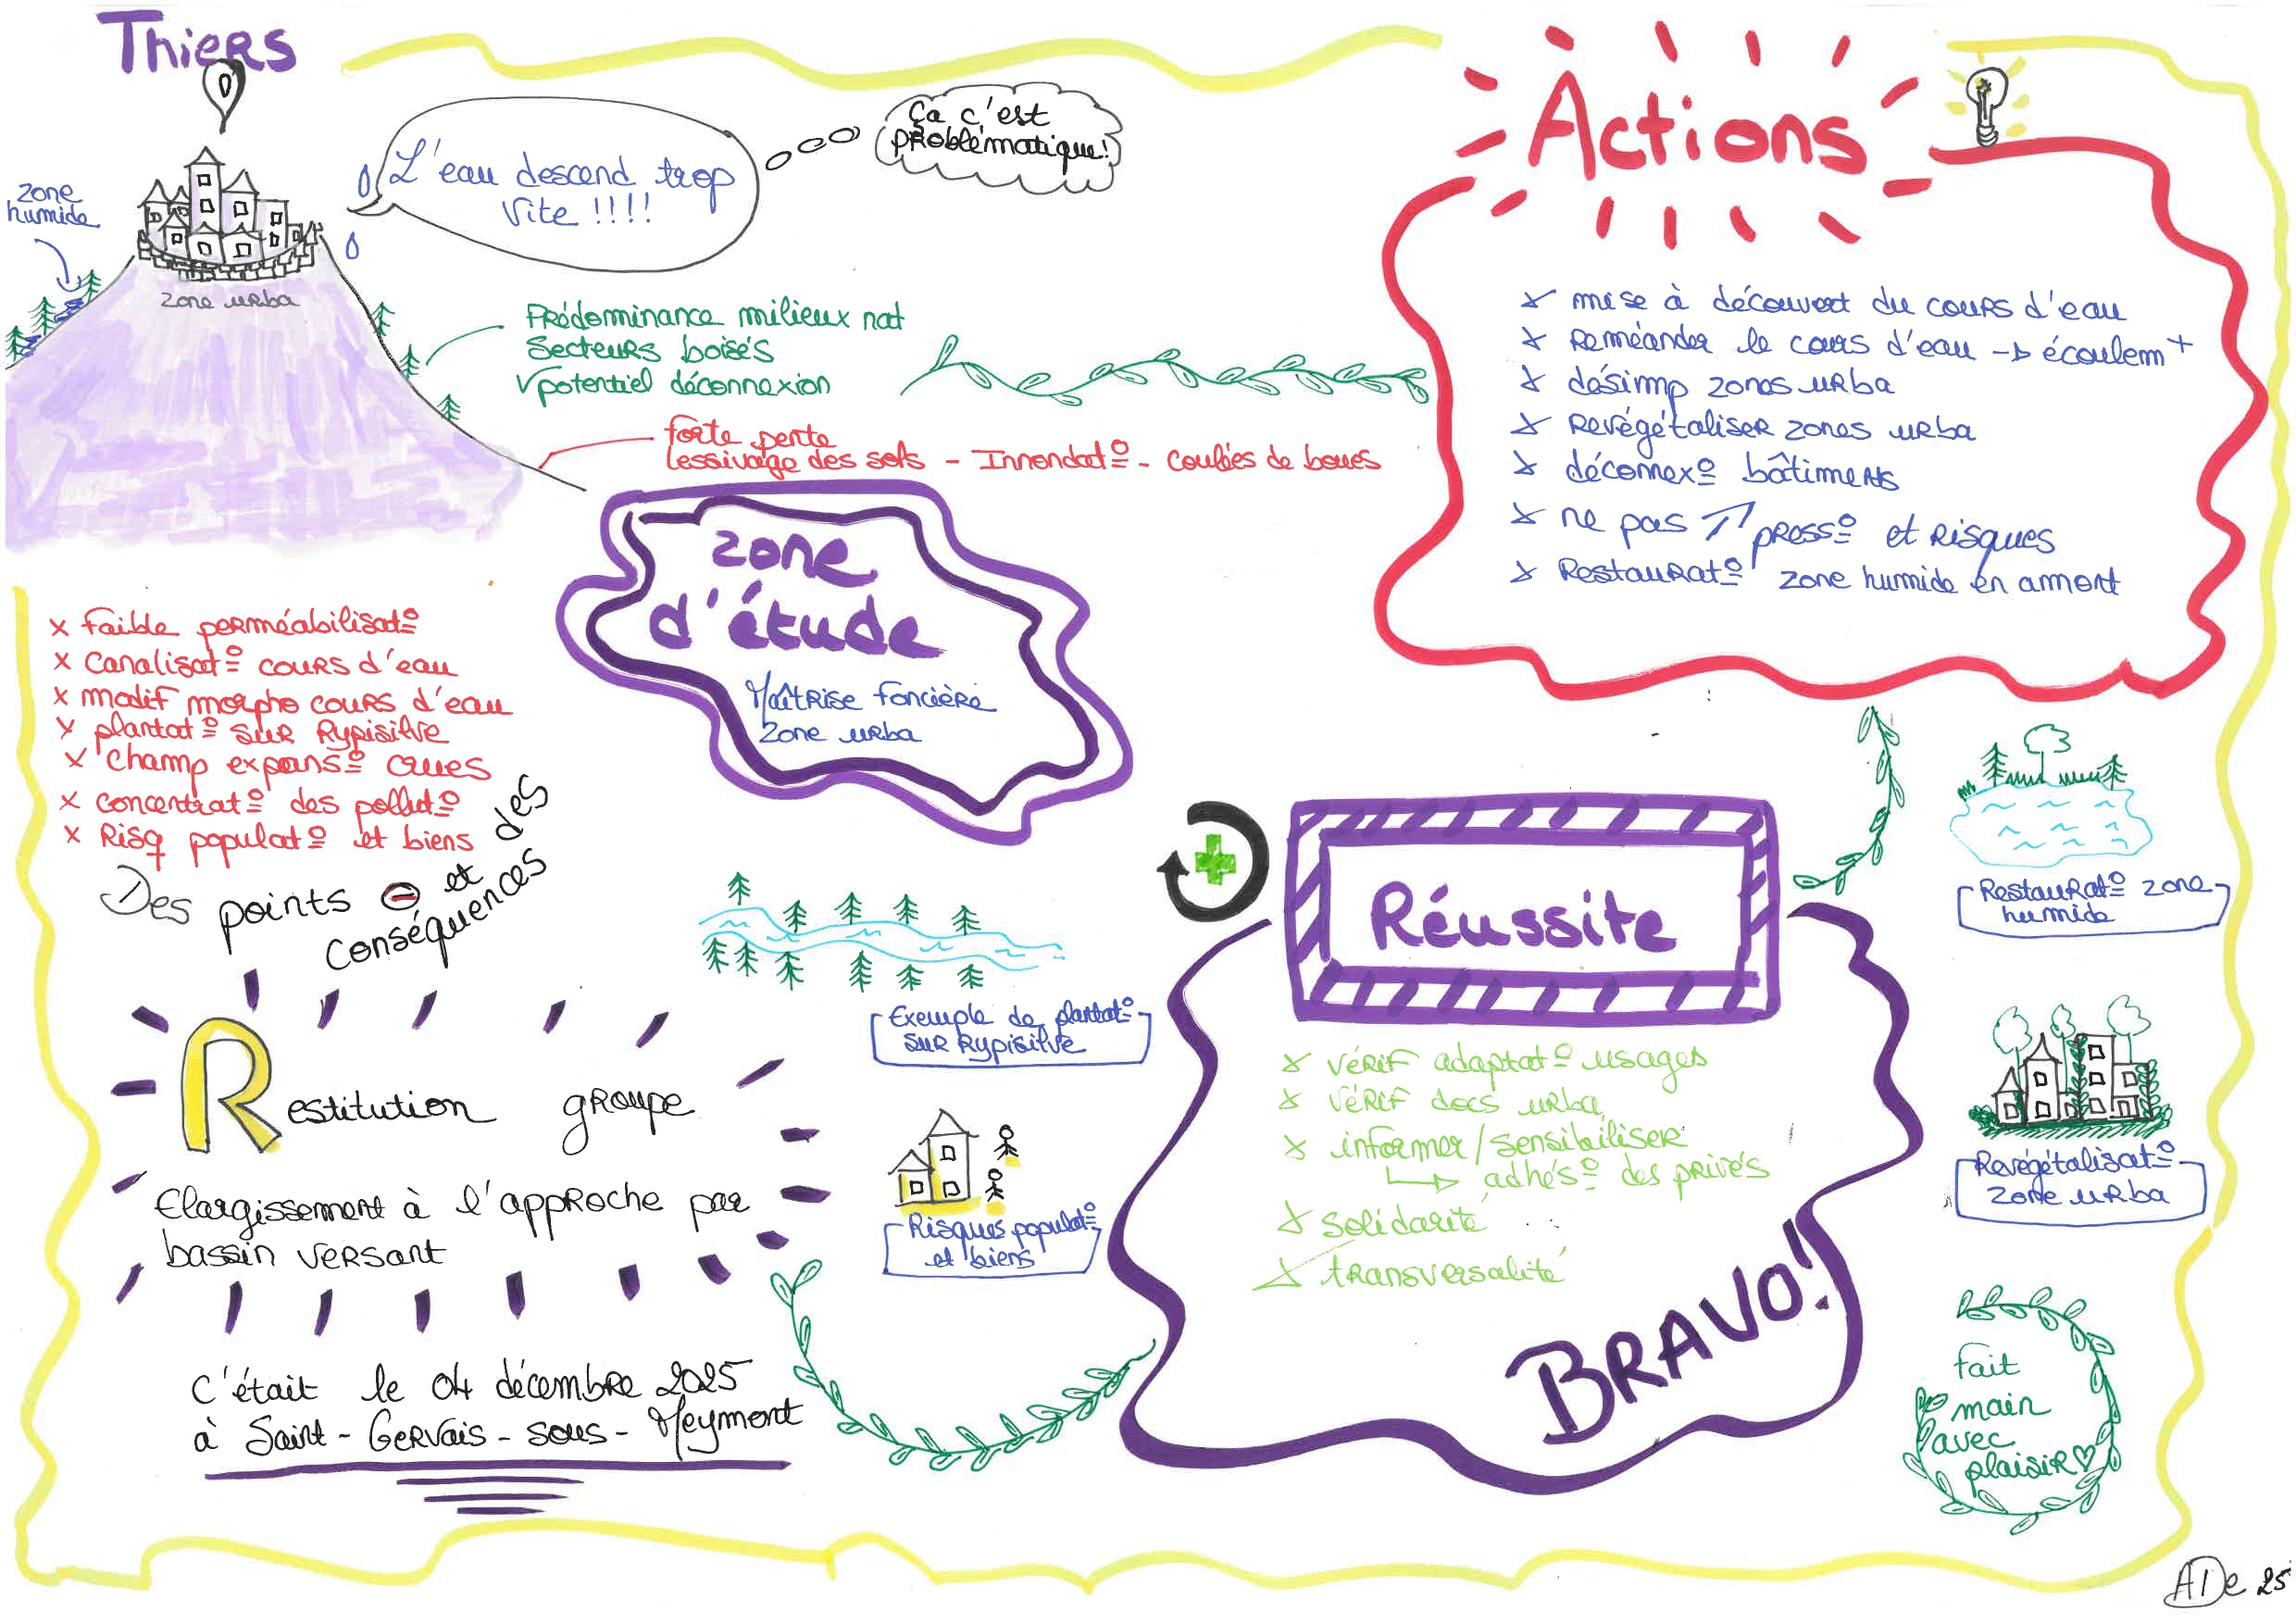 Thiers
zone
humide
zone urba
L'eau descend trop
vite !!!!
Ça c'est
problématique!
Prédominance milieux nat
Secteurs boisés
√potentiel déconnexion
forte pente
lessivage des sols - Innondat° - Coulées de boues
Actions
x mise à découvert du cours d'eau
x Reméander le cours d'eau -> écoulem+
x désimp zones urba
x Revégétaliser zones urba
x déconnex° bâtiments
x ne pas ↗ press° et Risques
x Restaurat° zone humide en amont
zone
d'étude
Maîtrise foncière
Zone urba
x faible perméabilisat°
x Canalisat° cours d'eau
x modif morpho cours d'eau
x plantat° sur Rypisilve
x champ expans° crues
x concentrat° des pollut°
x Risq populat° et biens
Des points ⊖ et des
conséquences
Exemple de plantat°
sur Rypisilve
Risques populat°
et biens
Restitution groupe
Elargissement à l'approche par
bassin versant
C'était le 04 décembre 2025
à Saint-Gervais-sous-Meymont
Réussite
x vérif adaptat° usages
x vérif docs urba
x informer/sensibiliser
↳ adhés° des privés
x solidarité
x transversalité
BRAVO!
Restaurat° zone
humide
Revégétalisat°
zone urba
fait
main
avec
plaisir♡
ADe 25